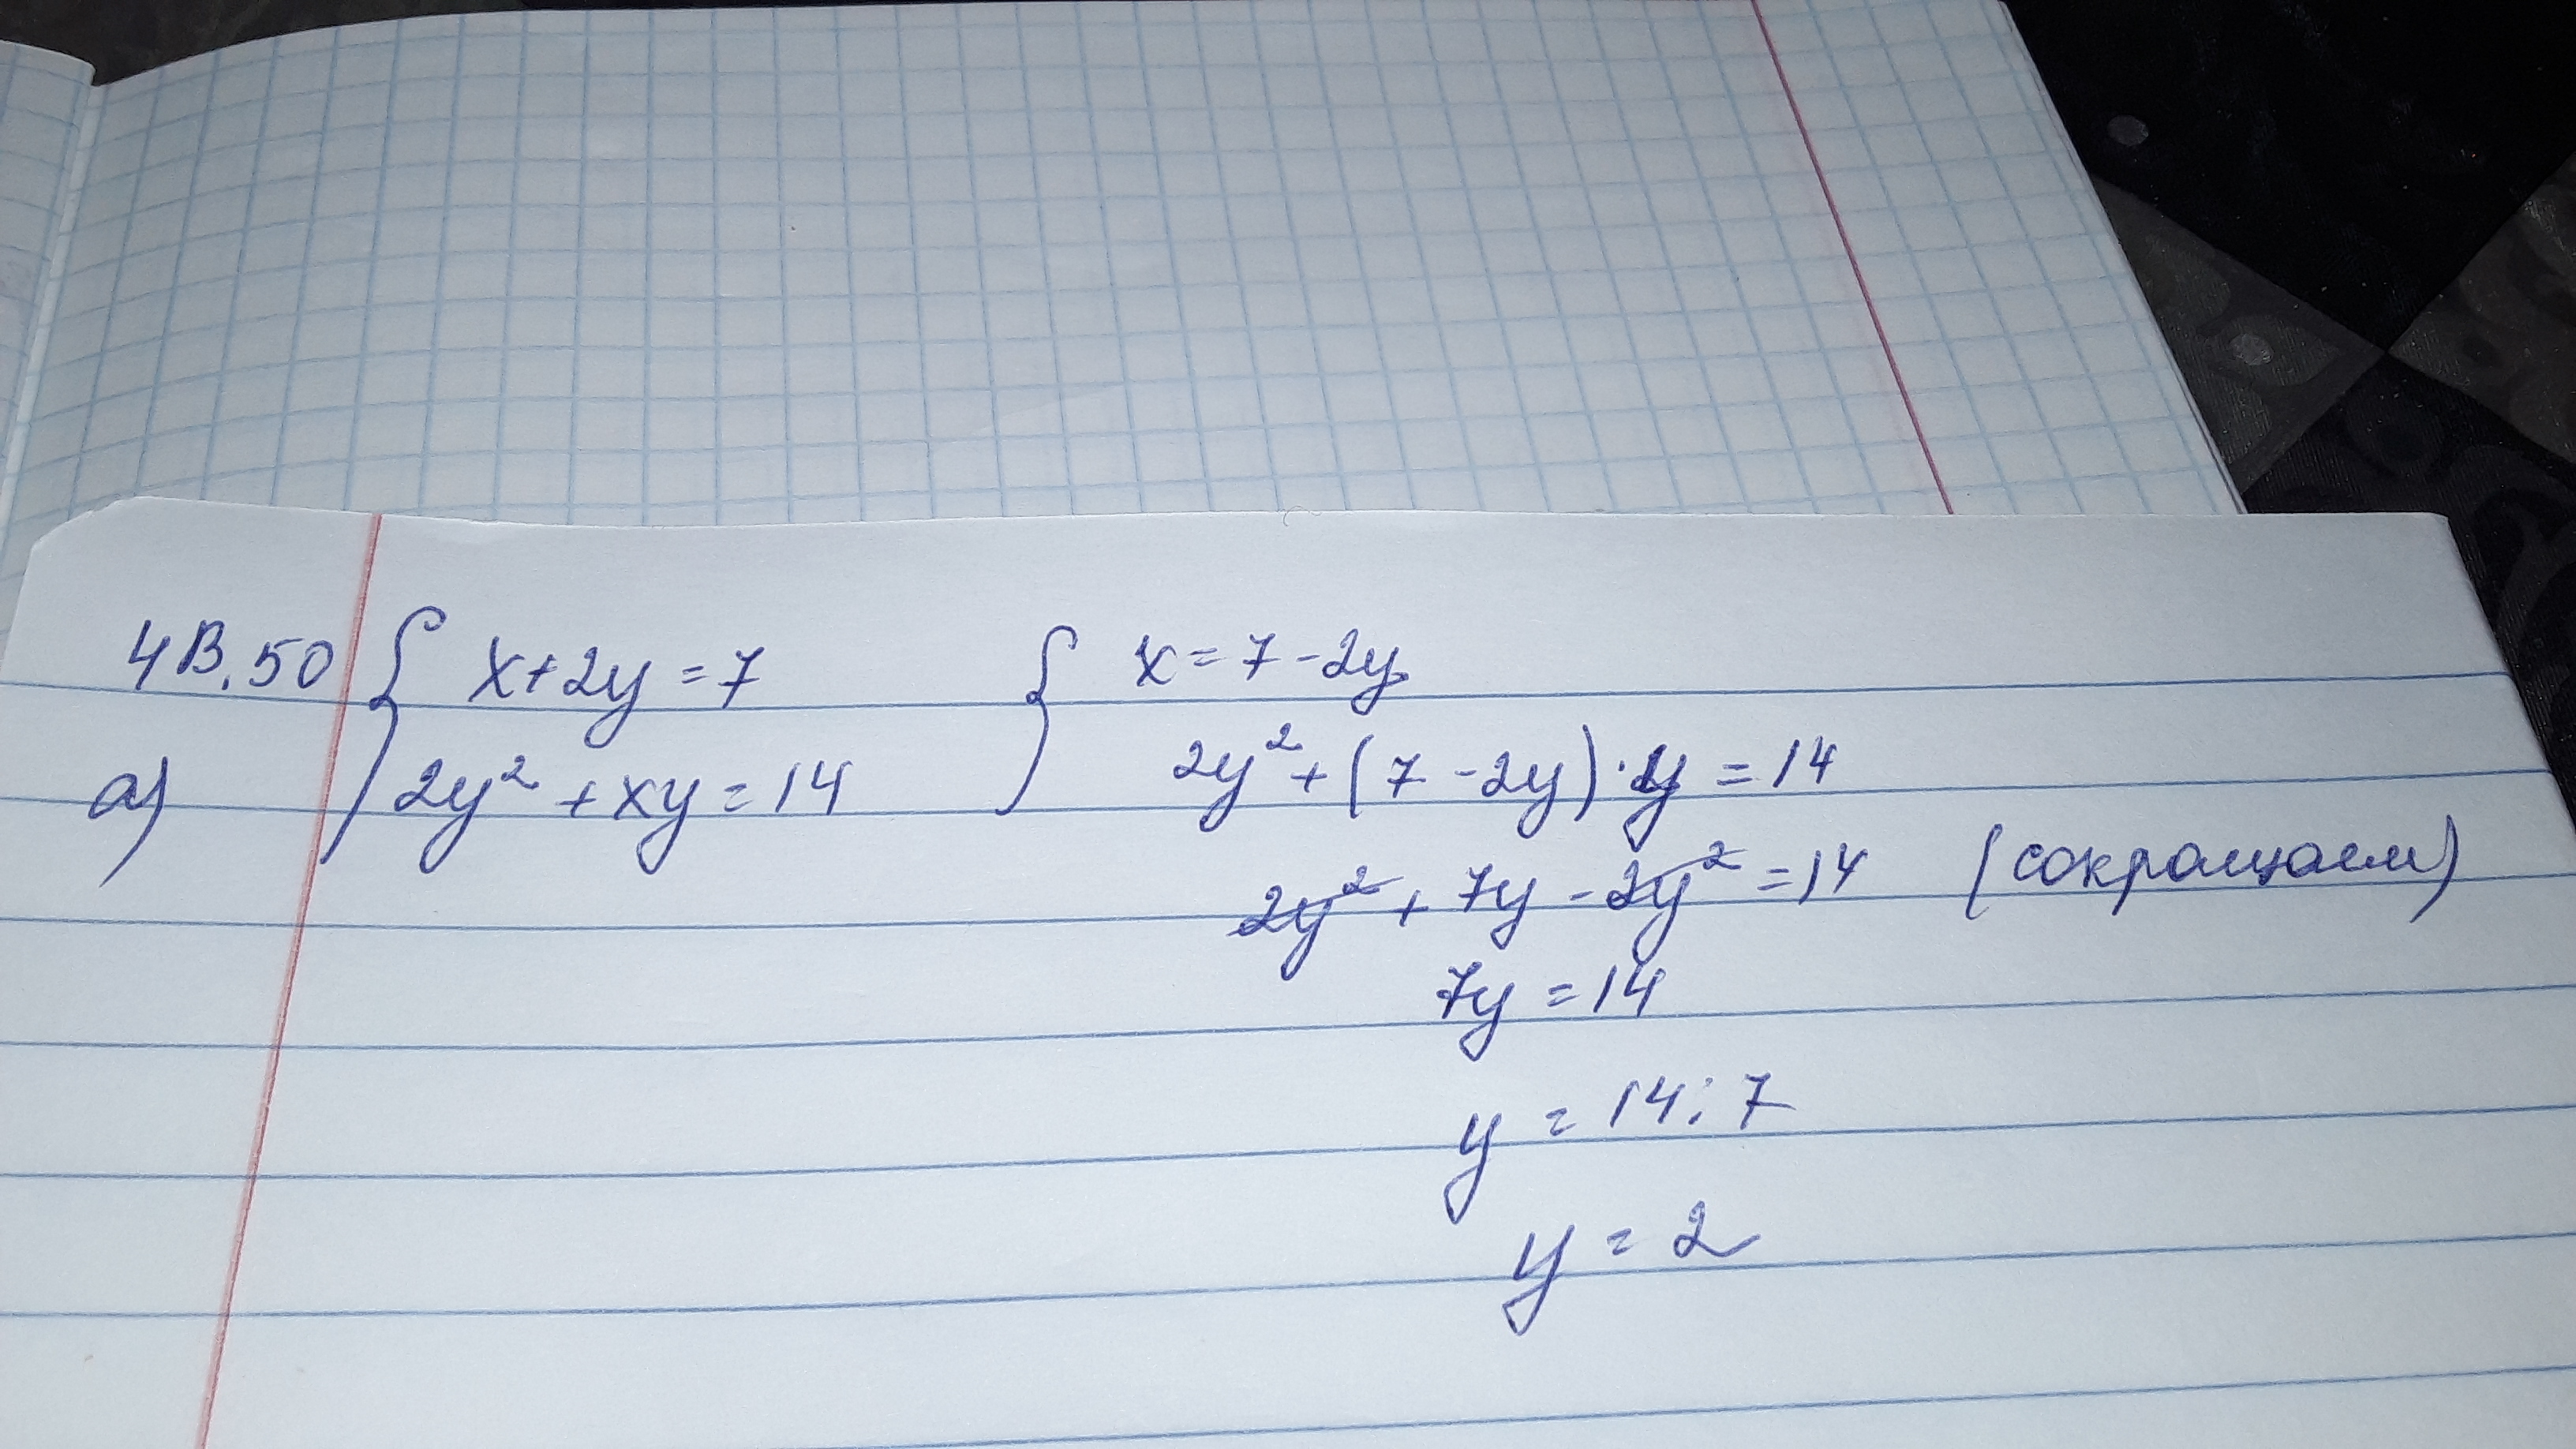 4В.50 { x+2y=7 { x=7-2y
а) 2y²+xy=14 2y²+(7-2y)·y=14
2y²+7y-2y²=14 (сокращаем)
7y=14
y=14:7
y=2